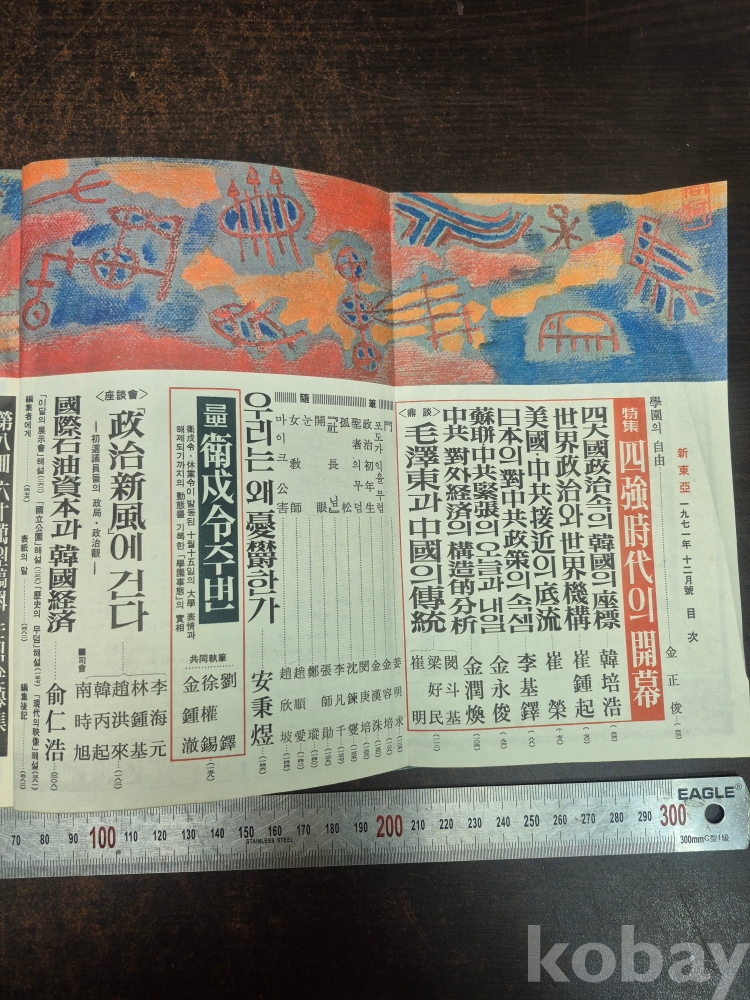 新東亞 一九七一年 十二月號 目次
學園의 自由 金正俊
特集 四強時代의 開幕
四大國政治속의 韓國의 座標 韓培浩
世界政治와 世界機構 崔鍾起
美國·中共接近의 底流 崔榮
日本의 對中共政策의 속셈 李基鐸
蘇聯·中共緊張의 오늘과 내일 金永俊
中共 對外經済의 構造的分析 金潤煥
〈鼎談〉 毛澤東과 中國의 傳統 閔斗基 梁好民 崔明
隨筆
門 姜明求
포도가 익을 무렵
政治初年生
聖者의 무덤
孤松
「社長님」 李凡千
開眼 張師勛
눈 鄭瑽
女敎師 趙順愛
마이크 公害 趙欣坡
우리는 왜 憂欝한가 安秉煜
衛戍令주변
衛戍令·休業令이 발동된 十月十五일의 大學 表情과
해제되기까지의 動態를 기록한 「學園事態」의 實相
共同執筆 劉鐸 徐權錫 金鍾澈
〈座談會〉
「政治新風」에 건다
―初選議員들의 政局·政治觀―
李海元 林鍾基 趙洪來 韓丙起 ■司會 南時旭
國際石油資本과 韓國経済 兪仁浩
「이달의 展示會」해설 「國立公園」해설 「歷史의 무덤」해설 「現代의 映像」해설
編集者에게 表紙의 말 編集後記
70 80 90 100 110 120 130 140 150 160 170 180 190 200 210 220 230 240 250 260 270 280 290 300
STAINLESS STEEL
EAGLE®
300mm C型1級
kobay